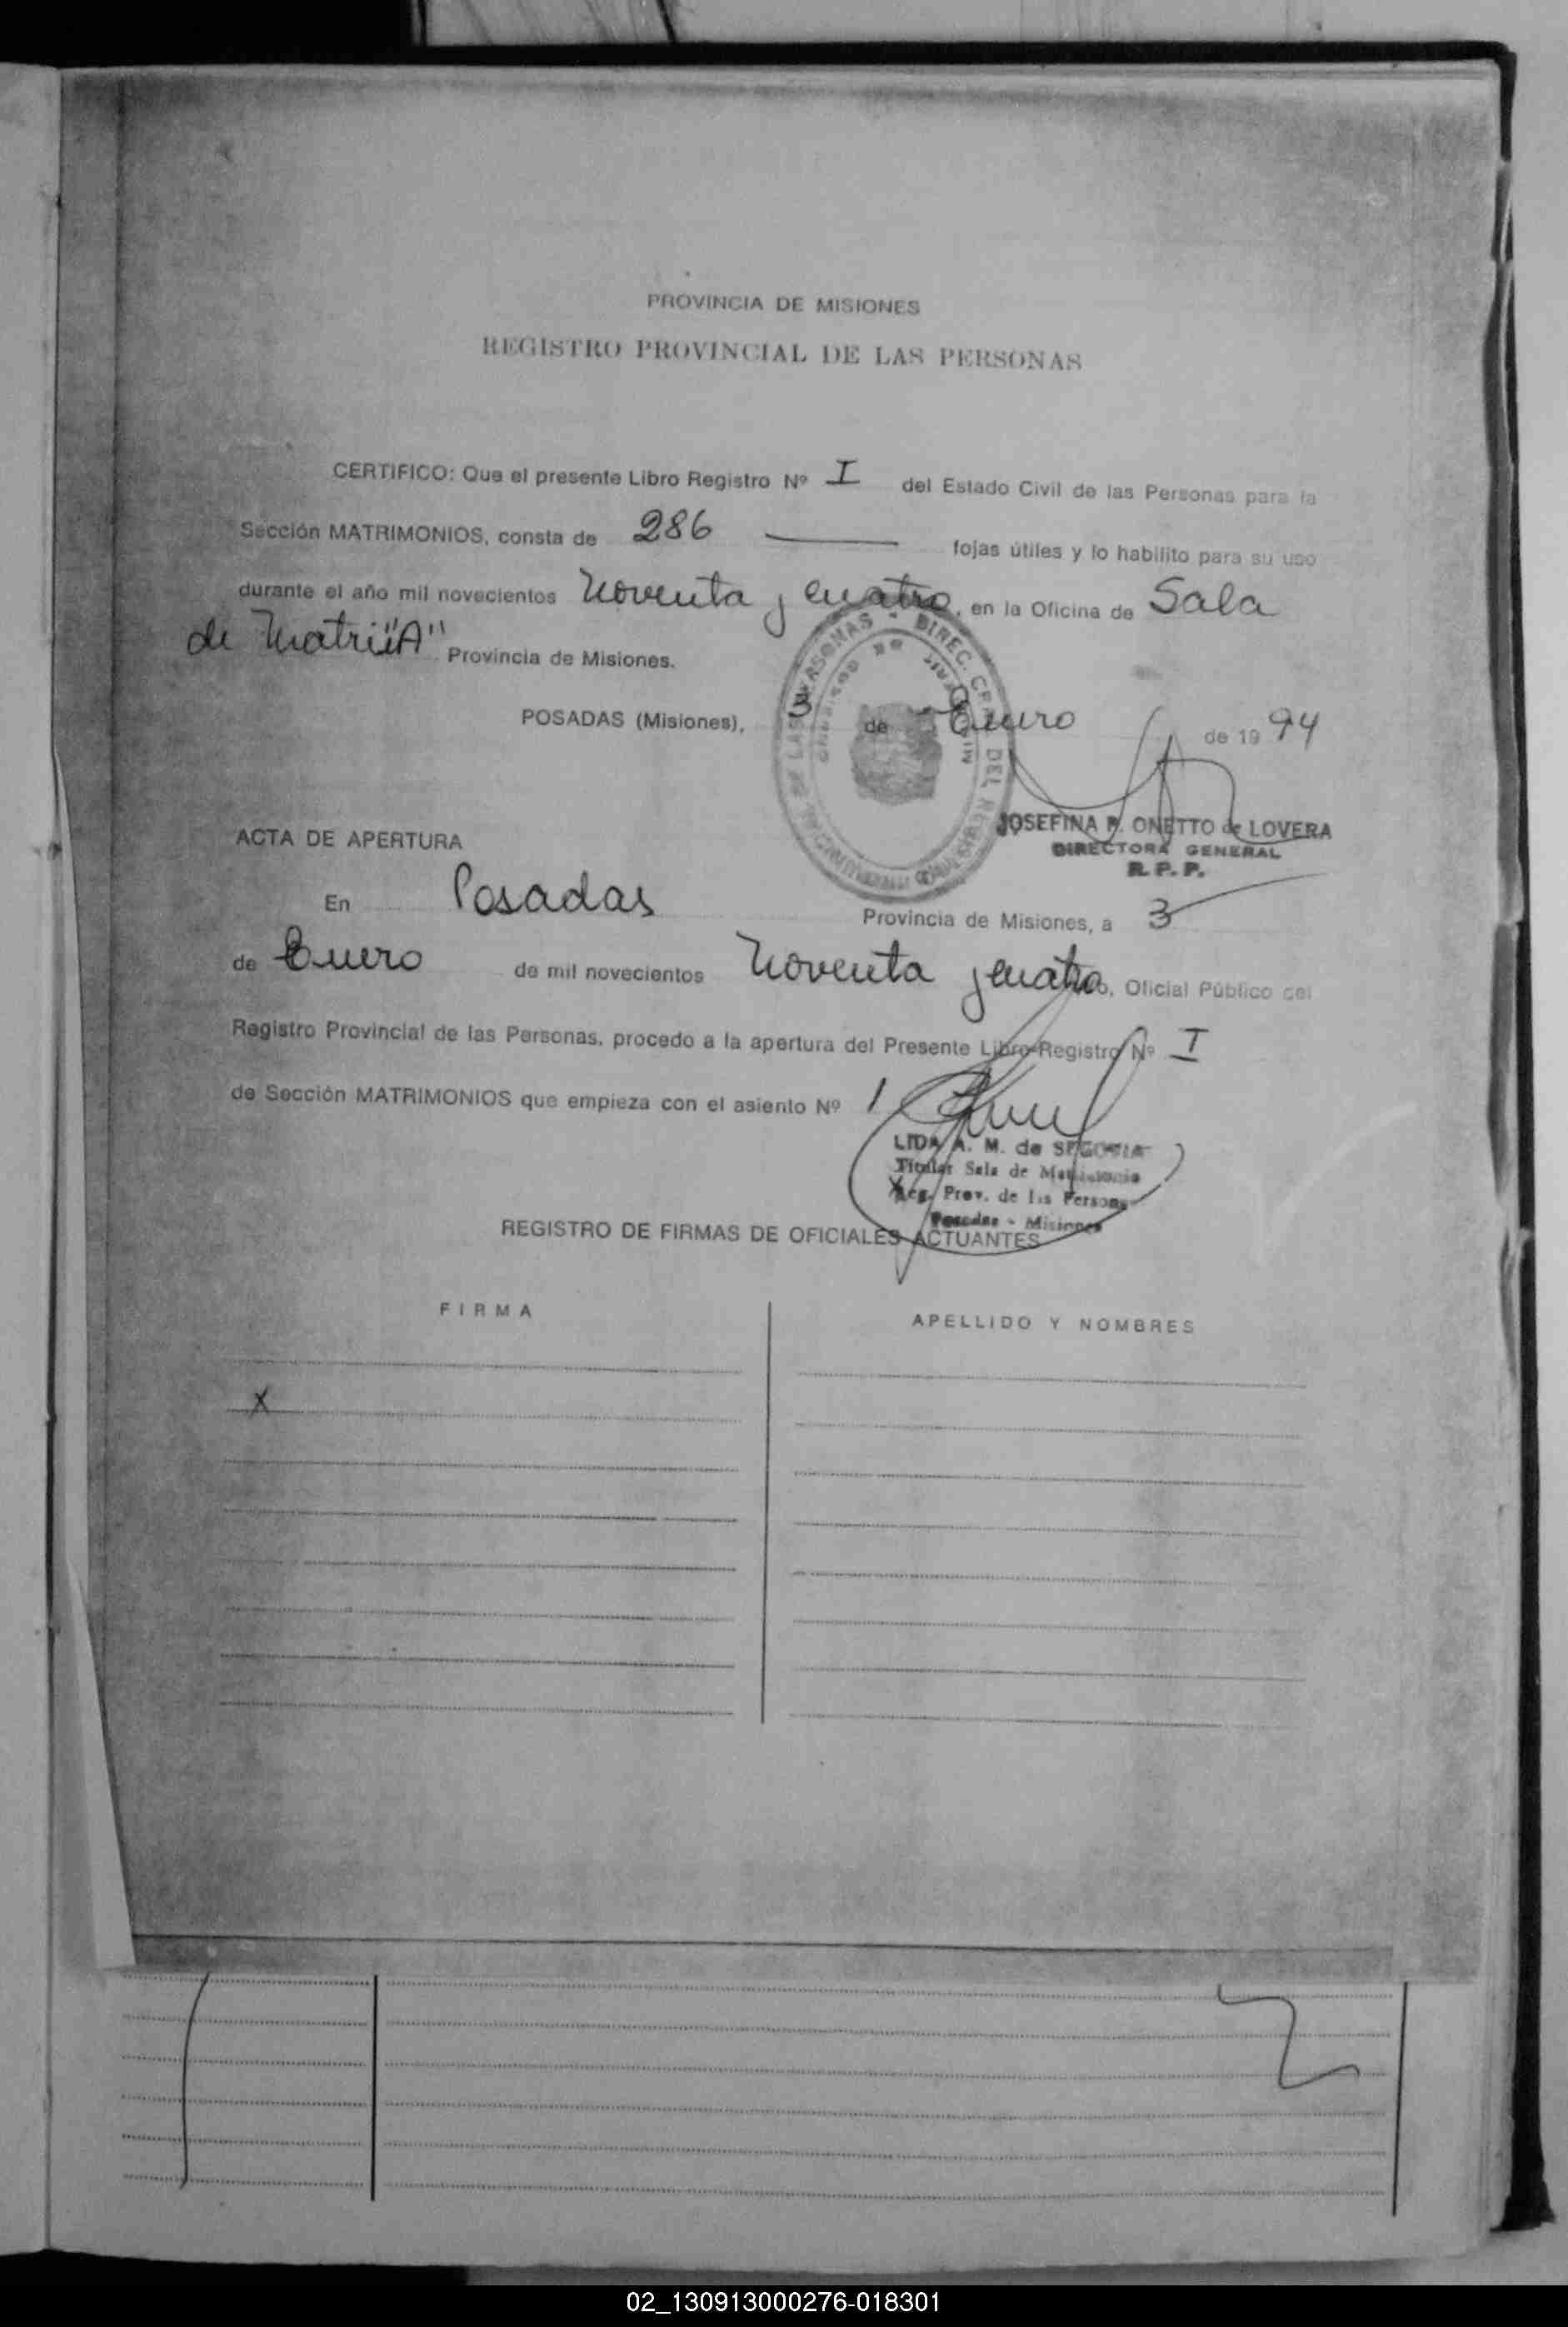 PROVINCIA DE MISIONES
REGISTRO PROVINCIAL DE LAS PERSONAS
CERTIFICO: Que el presente Libro Registro Nº I del Estado Civil de las Personas para la
Sección MATRIMONIOS, consta de 286 fojas útiles y lo habilito para su uso
durante el año mil novecientos Noventa y cuatro, en la Oficina de Sala
de Matri "A" Provincia de Misiones.
POSADAS (Misiones), 3 de Enero de 1994
JOSEFINA R. ONETTO de LOVERA
DIRECTORA GENERAL
R. P. P.
ACTA DE APERTURA
En Posadas Provincia de Misiones, a 3
de Enero de mil novecientos Noventa y cuatro, Oficial Público del
Registro Provincial de las Personas, procedo a la apertura del Presente Libro-Registro Nº I
de Sección MATRIMONIOS que empieza con el asiento Nº 1
LIDA A. M. de SEGOVIA
Titular Sala de Matrimonio
Reg. Prov. de las Personas
Posadas - Misiones
REGISTRO DE FIRMAS DE OFICIALES ACTUANTES
FIRMA APELLIDO Y NOMBRES
X
02_130913000276-018301